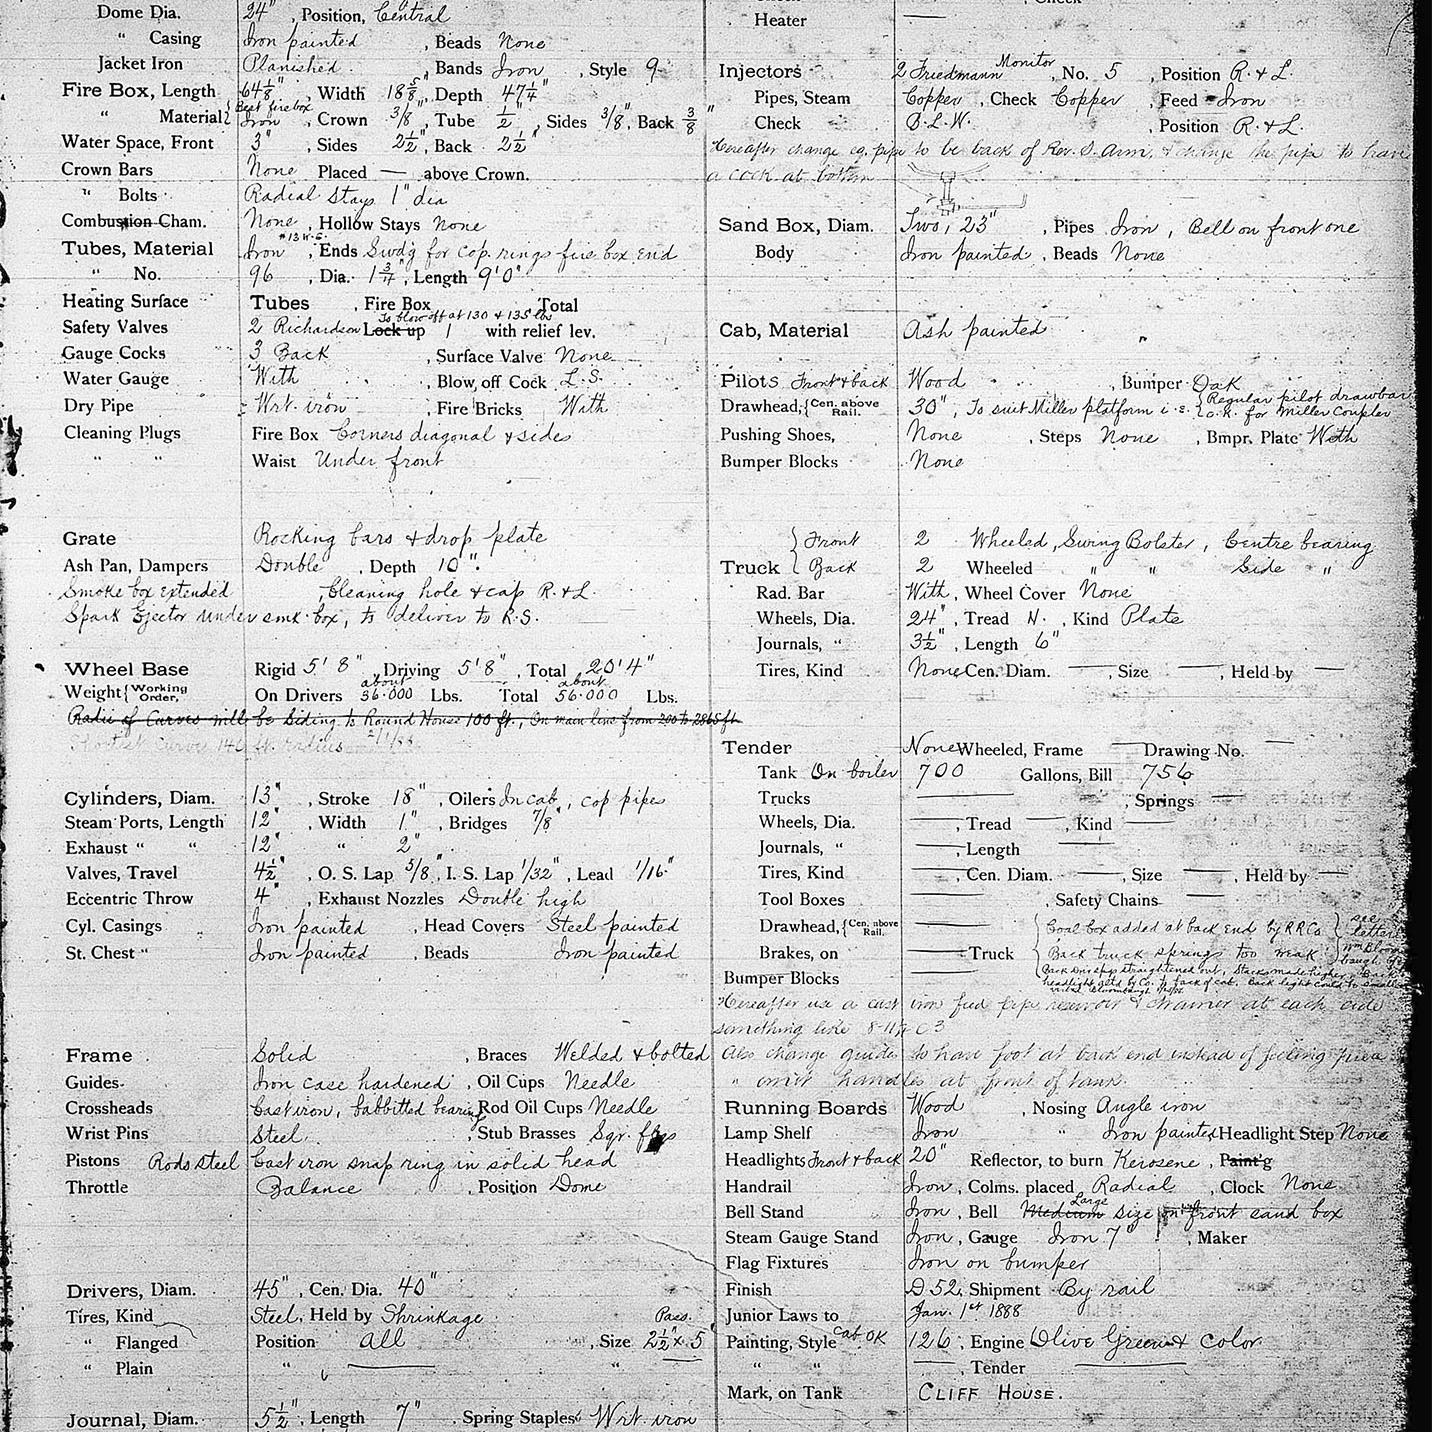 Dome Dia. 24", Position, Central
" Casing Iron painted, Beads None
Jacket Iron Planished, Bands Iron, Style 9
Fire Box, Length 64 1/8", Width 18 5/8", Depth 47 1/4"
" Material { Best fire box Iron, Crown 3/8", Tube 1/2", Sides 3/8", Back 3/8"
Water Space, Front 3", Sides 2 1/2", Back 2 1/2"
Crown Bars None Placed — above Crown.
" Bolts Radial Stays 1" dia
Combustion Cham. None, Hollow Stays None
Tubes, Material Iron #13 W.G., Ends Swdg for cop. rings fire box end
" No. 96, Dia. 1 3/4", Length 9'0"
Heating Surface Tubes, Fire Box Total
To blow off at 130 & 135 lbs
Safety Valves 2 Richardson Lock up 1 with relief lev.
Gauge Cocks 3 Back, Surface Valve None
Water Gauge With, Blow off Cock L.S.
Dry Pipe Wrt. iron, Fire Bricks With
Cleaning Plugs Fire Box Corners diagonal & sides
" " Waist Under front
Grate Rocking bars & drop plate
Ash Pan, Dampers Double, Depth 10".
Smoke box extended, Cleaning hole & cap R. & L.
Spark Ejector under smk. box, to deliver to R.S.
Wheel Base Rigid 5' 8", Driving 5' 8", Total 20' 4"
Weight { Working Order, On Drivers about 36.000 Lbs. Total about 56.000 Lbs.
Radii of Curves will be Siding to Round House 100 ft., On main line from 200 to 2865 ft
Shortest Curve 146 ft. radius
Cylinders, Diam. 13", Stroke 18", Oilers In cab, cop pipes
Steam Ports, Length 12", Width 1", Bridges 7/8"
Exhaust " " 12" " 2"
Valves, Travel 4 1/2", O. S. Lap 5/8", I. S. Lap 1/32", Lead 1/16"
Eccentric Throw 4", Exhaust Nozzles Double high
Cyl. Casings Iron painted, Head Covers Steel painted
St. Chest " Iron painted, Beads Iron painted
Frame Solid, Braces Welded & bolted
Guides Iron case hardened, Oil Cups Needle
Crossheads Cast iron, babbitted bearing, Rod Oil Cups Needle
Wrist Pins Steel, Stub Brasses Sqr.
Pistons Rods steel Cast iron snap ring in solid head
Throttle Balance, Position Dome
Drivers, Diam. 45", Cen. Dia. 40"
Tires, Kind Steel, Held by Shrinkage
" Flanged Position All, Size Pass. 2 1/2" x 5"
" Plain " — "
Journal, Diam. 5 1/2", Length 7". Spring Staples Wrt. iron
Heater —
Injectors 2 Friedmann Monitor, No. 5, Position R. & L.
Pipes, Steam Copper, Check Copper, Feed Iron
Check B.L.W., Position R. & L.
Hereafter change eq. pipe to be back of Rev. S. Arm, & change the pipe to have
a cock at bottom
Sand Box, Diam. Two, 23", Pipes Iron, Bell on front one
Body Iron painted, Beads None
Cab, Material Ash painted
Pilots Front & back Wood, Bumper Oak
Drawhead, { Cen. above Rail. 30", To suit Miller platform i.e. { Regular pilot drawbar
O.K. for Miller Coupler
Pushing Shoes, None, Steps None, Bmpr. Plate With
Bumper Blocks None
Truck { Front 2 Wheeled, Swing Bolster, Centre bearing
Back 2 Wheeled " " Side "
Rad. Bar With, Wheel Cover None
Wheels, Dia. 24", Tread N., Kind Plate
Journals, " 3 1/2", Length 6"
Tires, Kind None Cen. Diam. —, Size —, Held by —
Tender None Wheeled, Frame — Drawing No. —
Tank On boiler 700 Gallons, Bill 756
Trucks —, Springs —
Wheels, Dia. —, Tread —, Kind —
Journals, " —, Length —
Tires, Kind —, Cen. Diam. —, Size —, Held by —
Tool Boxes —, Safety Chains —
Drawhead, { Cen. above Rail. — { Coal box added at back end by R R Co. } see letter
Brakes, on — Truck Back truck springs too weak
Bumper Blocks —
Hereafter use a cast iron feed pipe reservoir & strainer at each side
something like 8-11 1/2 C 3
Also change guides to have foot at back end instead of
" omit handles at front of tank.
Running Boards Wood, Nosing Angle iron
Lamp Shelf Iron " Iron painted Headlight Step None
Headlights Front & back 20" Reflector, to burn Kerosene, Paint'g
Handrail Iron, Colms. placed Radial, Clock None
Bell Stand Iron, Bell Medium Large size on front sand box
Steam Gauge Stand Iron, Gauge Iron 7", Maker
Flag Fixtures Iron on bumper
Finish D 52, Shipment By rail
Junior Laws to Jan. 1st 1888
Painting, Style Cab OK 126, Engine Olive Green & Color
" " —, Tender —
Mark, on Tank CLIFF HOUSE.